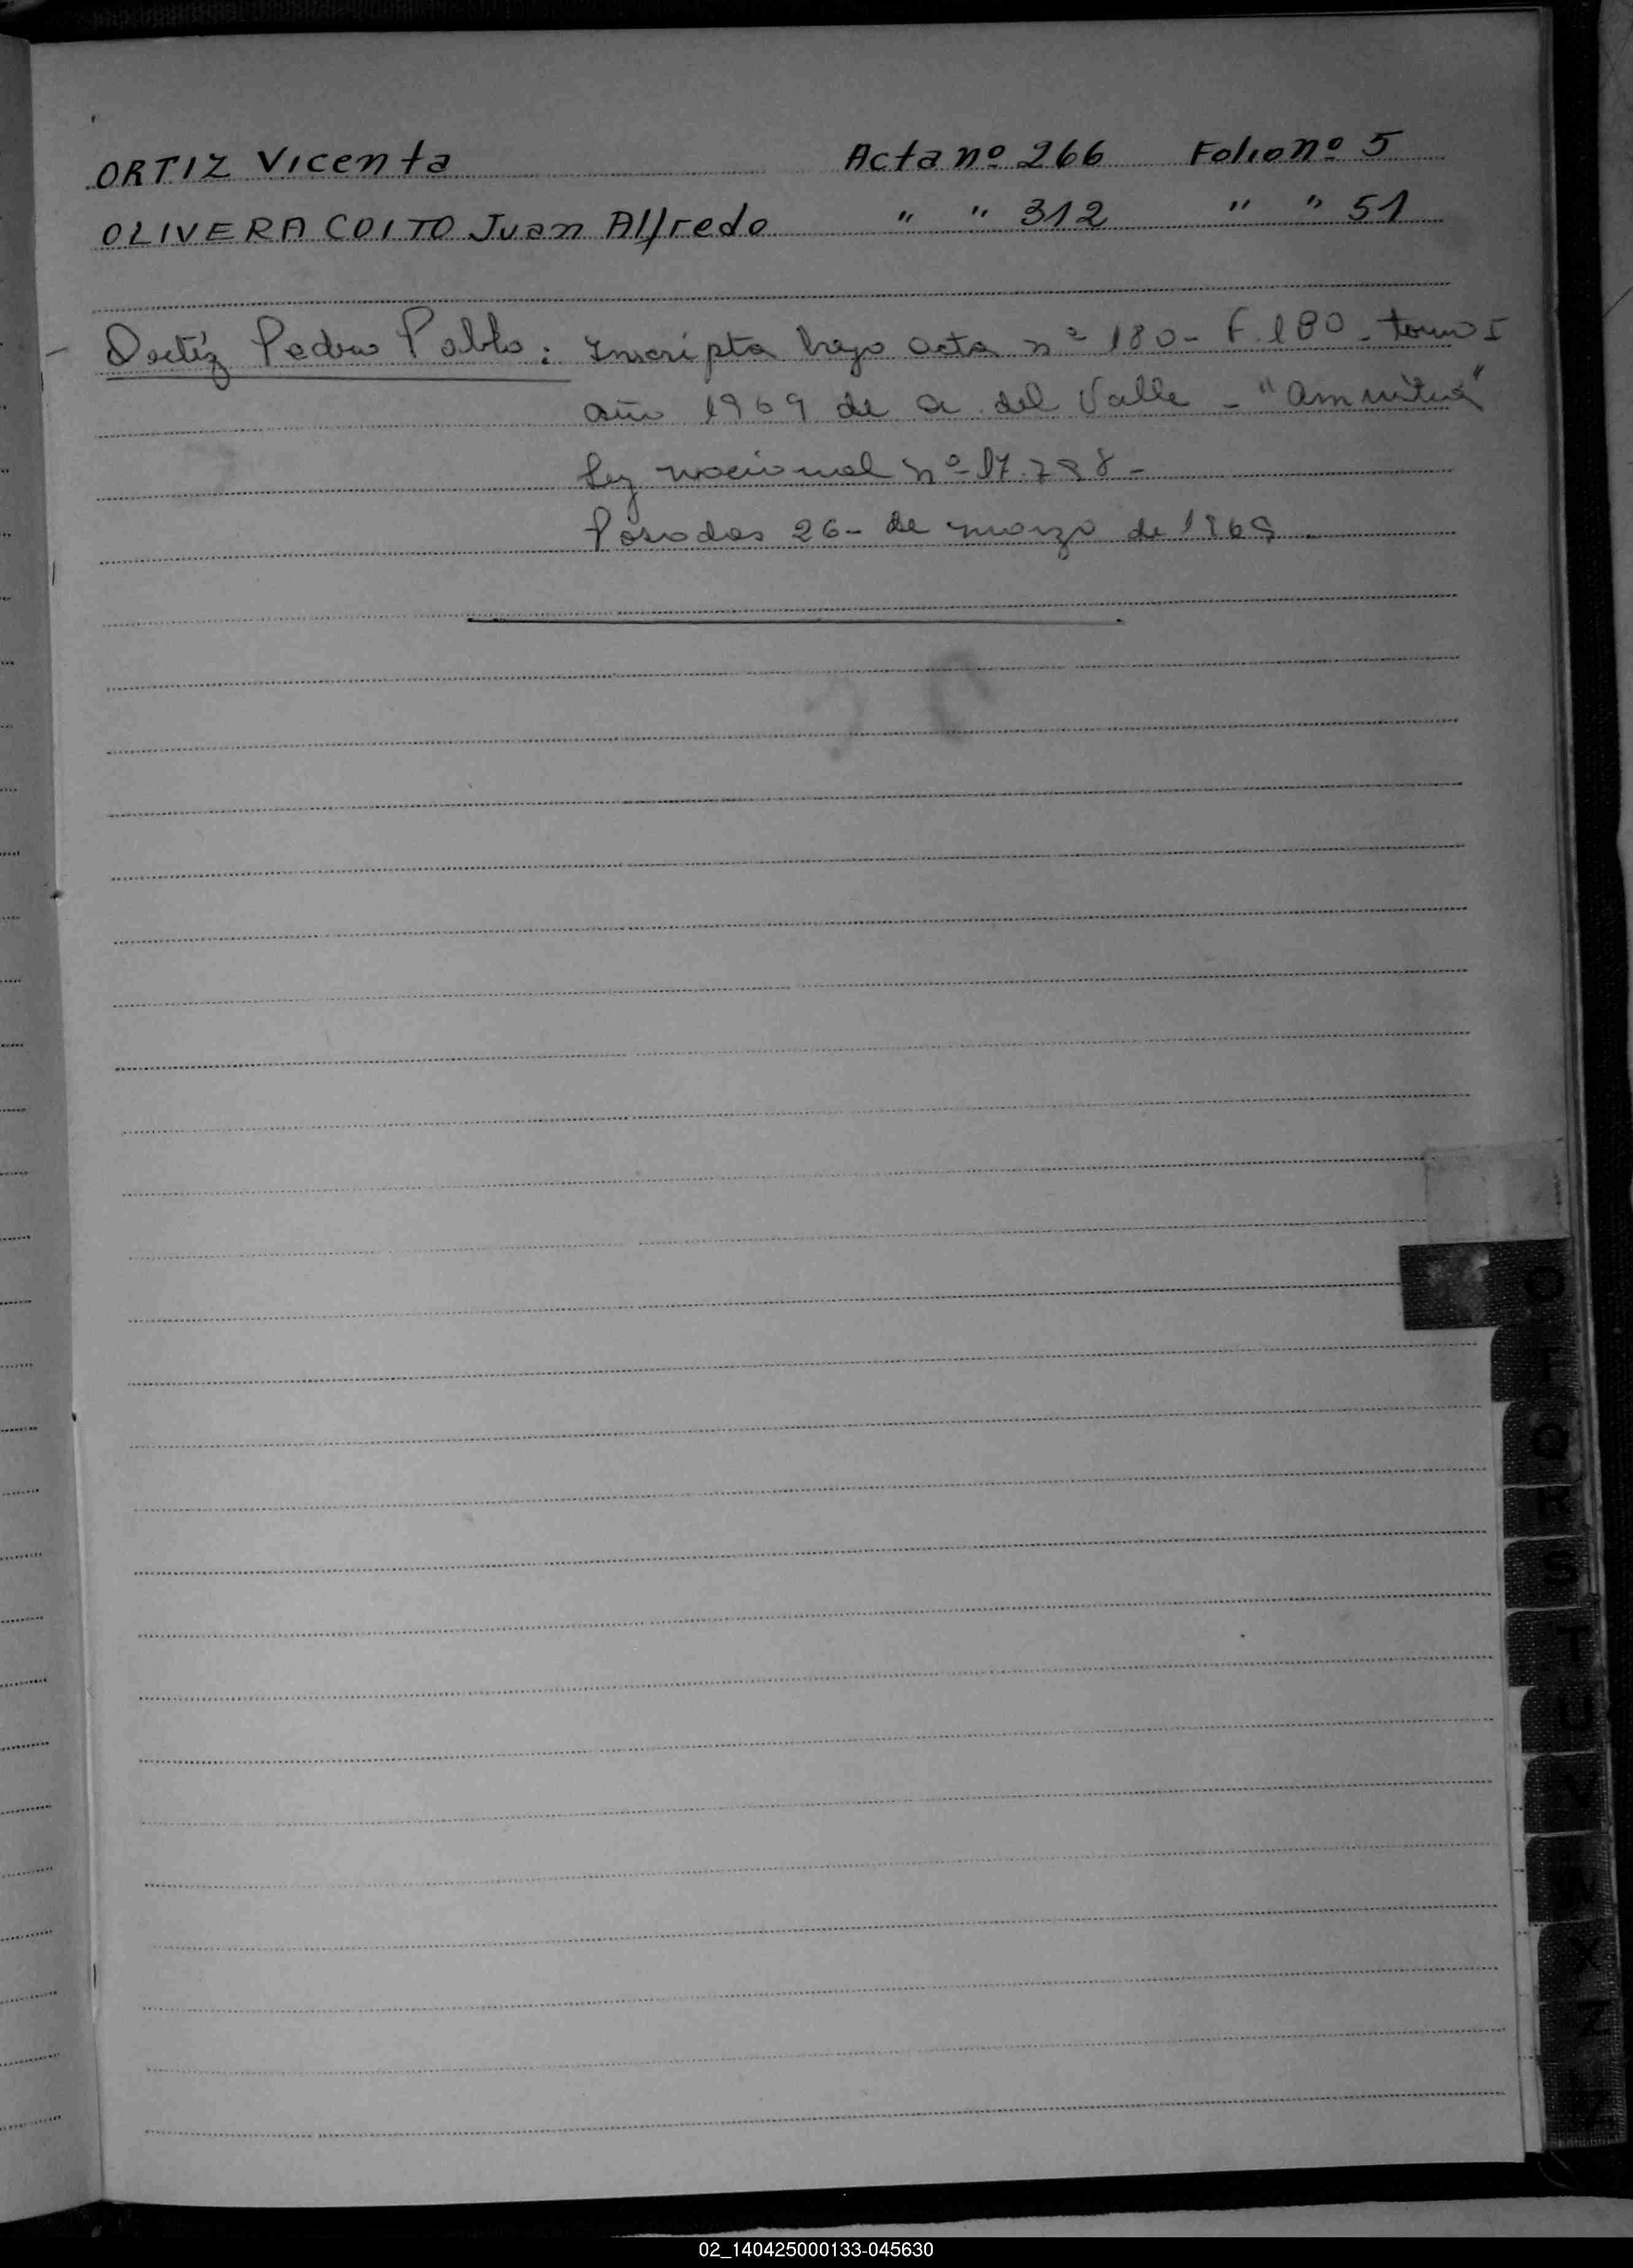 ORTIZ Vicenta Acta nº 266 Folio nº 5
OLIVERA COITO Juan Alfredo " " 312 " " 51
- Ortiz Pedro Pablo: Inscripta bajo acta nº 180- F. 180- tomo I
año 1969 de A. del Valle -
Ley nacional nº 17.798-
Posadas 26- de marzo de 1969.
O
P
Q
R
S
T
U
V
W
X
Z
02_140425000133-045630